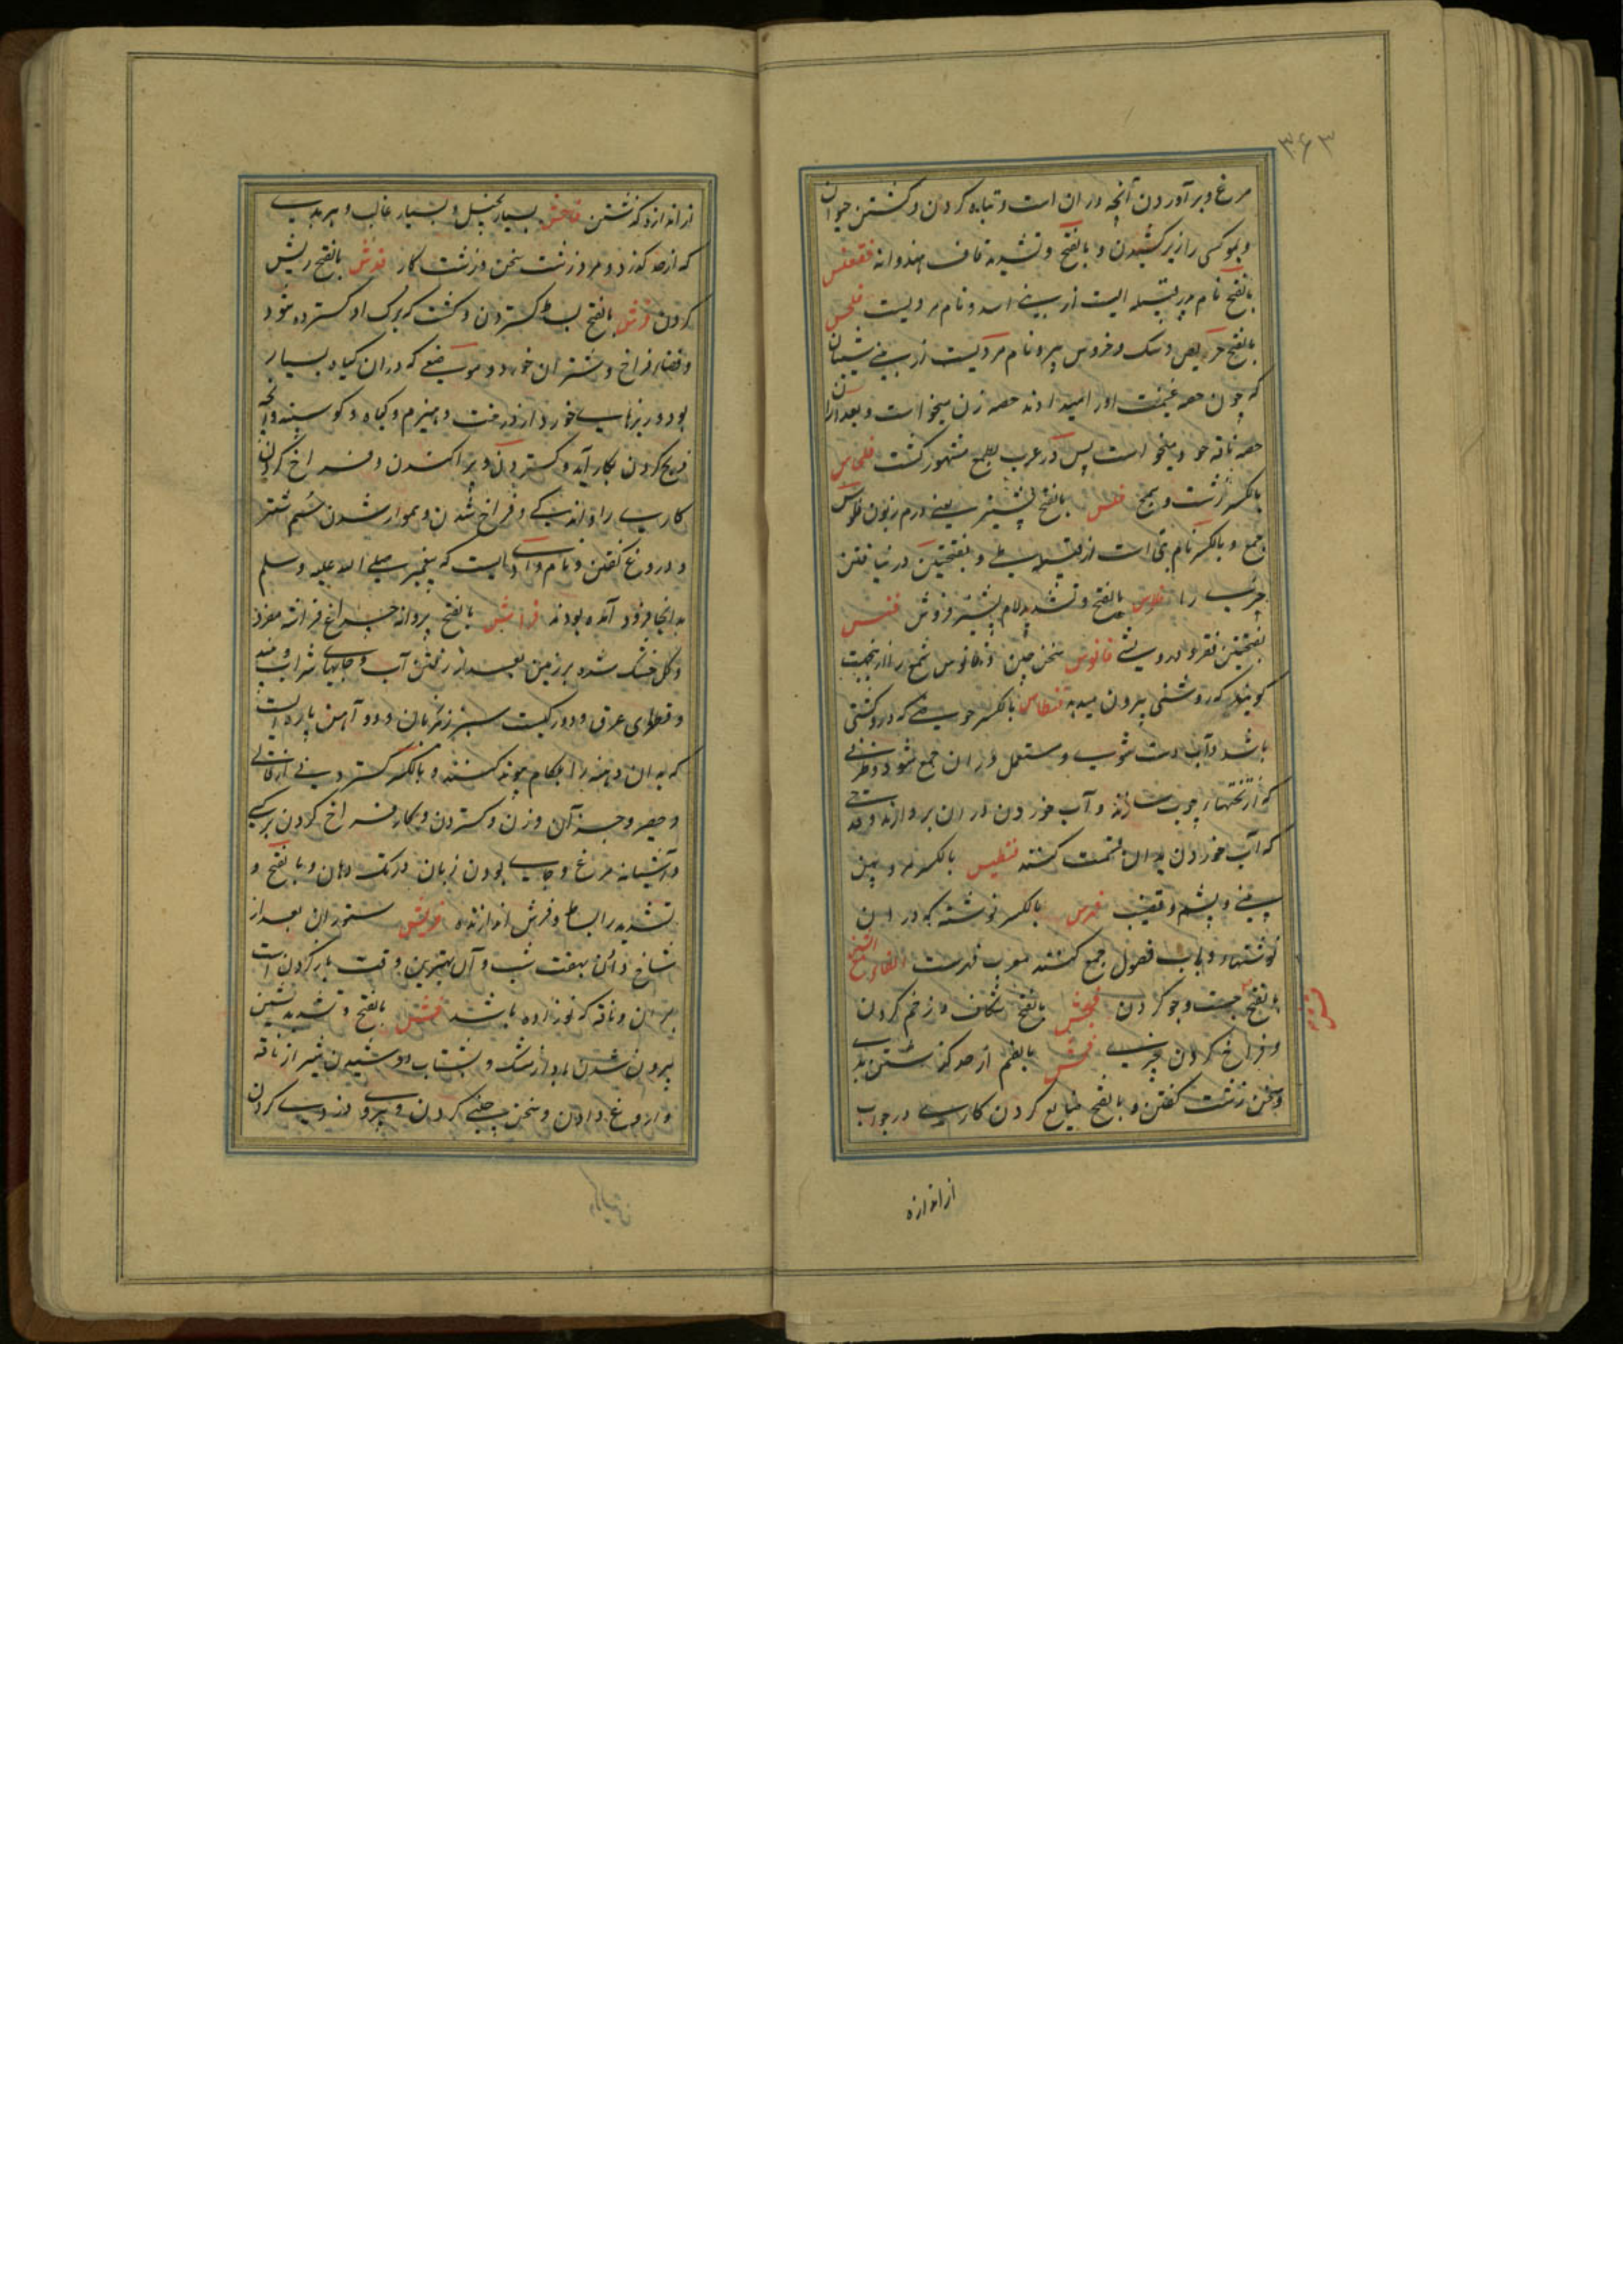 ۳۶۳
مرغ و برآوردن آنچه دران است و تباه کردن و کشتن حیوان
و بموی کسی را زیر کشیدن و بالفتح و تشدید قاف هندوانه فقعس
بالفتح نام پدر قبیله ایست از بنی اسد و نام مردیست فلحس
بالفتح حریص و سک و خروس پیر و نام مردیست از بنی شیبان
که چون حصه غنیمت او را میدادند حصه زن میخواست و بعد ازان
حصه ناقه خود میخواست پس در عرب بطمع مشهور کشت
بالکسر زشت و قبیح فلس بالفتح پشیز یعنی درم زبون فلوس
جمع و بالکسر نام بتی است از قبیله طی و بفتحتین در نیافتن
چیزی را فلاس بالفتح و تشدید لام پشیز فروش فنس
بفتحتین فقر و درویشی فانوس سخن چین و فانوس شمع را ازینجهت
کویند که روشنی بیرون میدهد فنطاس بالکسر حوضی که در کشتی
باشد و آب دست شوی و مستعمل دران جمع شود و ظرفی
که از تختهای چوب سازند و آب خوردن دران بردارند و قدحی
که آب خوردن بدان قسمت کنند فنطیس بالکسر مرد پهن
بینی و پشم و قضیب فهرس بالکسر نوشته که در ان
نوشتها و باب فصول جمع کنند معرب فهرست الفاء مع الشین
فتش
بالفتح جست و جو کردن فجش بالفتح شکافتن و زخم کردن
و فراخ کردن چیزی فحش بالضم از حد کذشتن بدی
و سخن زشت کفتن و بالفتح ضایع کردن کاری در جواب
از اندازه
از اندازه کذشتن فاحش بسیار بخیل و بسیار غالب و هر بدی
که از حد کذرد و مرد زشت سخن و زشت کار فدش بالفتح ریش
کردن فرش بالفتح بساط کستردن و کشت که برک او کسترده شود
و فضای فراخ و شتران خورد و موضعی که دران کیاه بسیار
بود و ریزهای خورد از درخت و هیزم و کیاه و کوسپند و آنچه
ذبح کردن بکار آید و کستردن و پراکندن و فراخ کردن
کاری را و اندکی و فراخ شدن و هموار شدن سم شتر
و دروغ کفتن و نام وادی ایست که پیغمبر صلی الله علیه وسلم
بدانجا فرود آمده بودند فراش بالفتح پروانه چراغ فراشه مفرد
و کل خشک شده بر زمین بعد از رفتن آب و حبابهای شراب
و قطرهای عرق و دو رکیست سبز زیر زبان و دو آهن پاره ایست
که بدان دهنه را بلکام پیوند کنند و بالکسر کستردنی از قالی
و حصیر و جز آن و زن و کستردن و بکار فراخ کردن بر کسی
و آشیانه مرغ و جای بودن زبان در تک دهان و بالفتح و
تشدید را بساط و فرش اندازنده فریش ستوران بعد از
نتاج دادن بهفت شب و آن بهترین وقت بار کردن است
بران و ناقه که نو زاده باشد فشش بالفتح و تشدید شین
بیرون شدن باد از مشک و بشتاب دوشیدن شیر از ناقه
و آروغ دادن و سخن چینی کردن و پیروی دزدی کردن